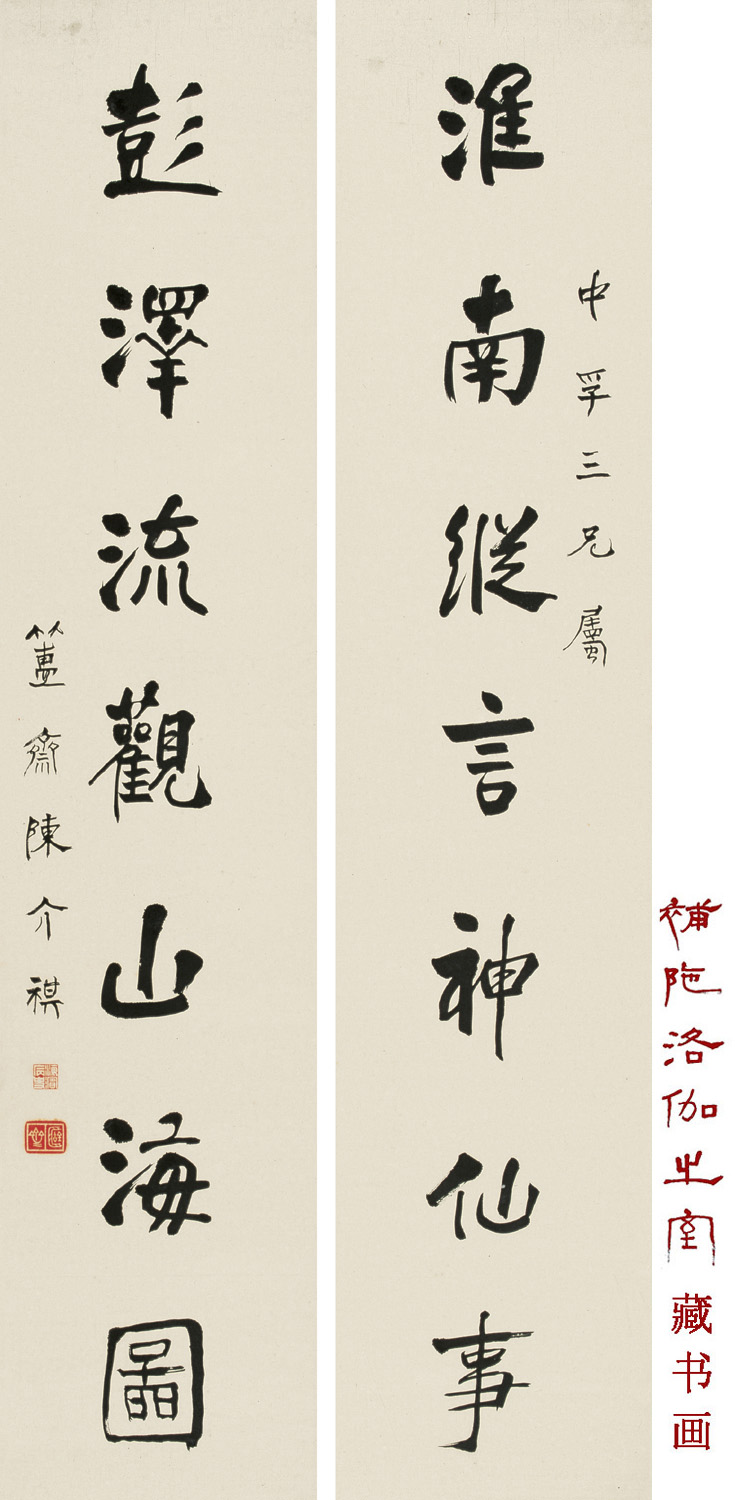 補陁洛伽之室藏书画
中孚三兄屬
淮南縱言神仙事
彭澤流觀山海圖
簠齋陳介祺